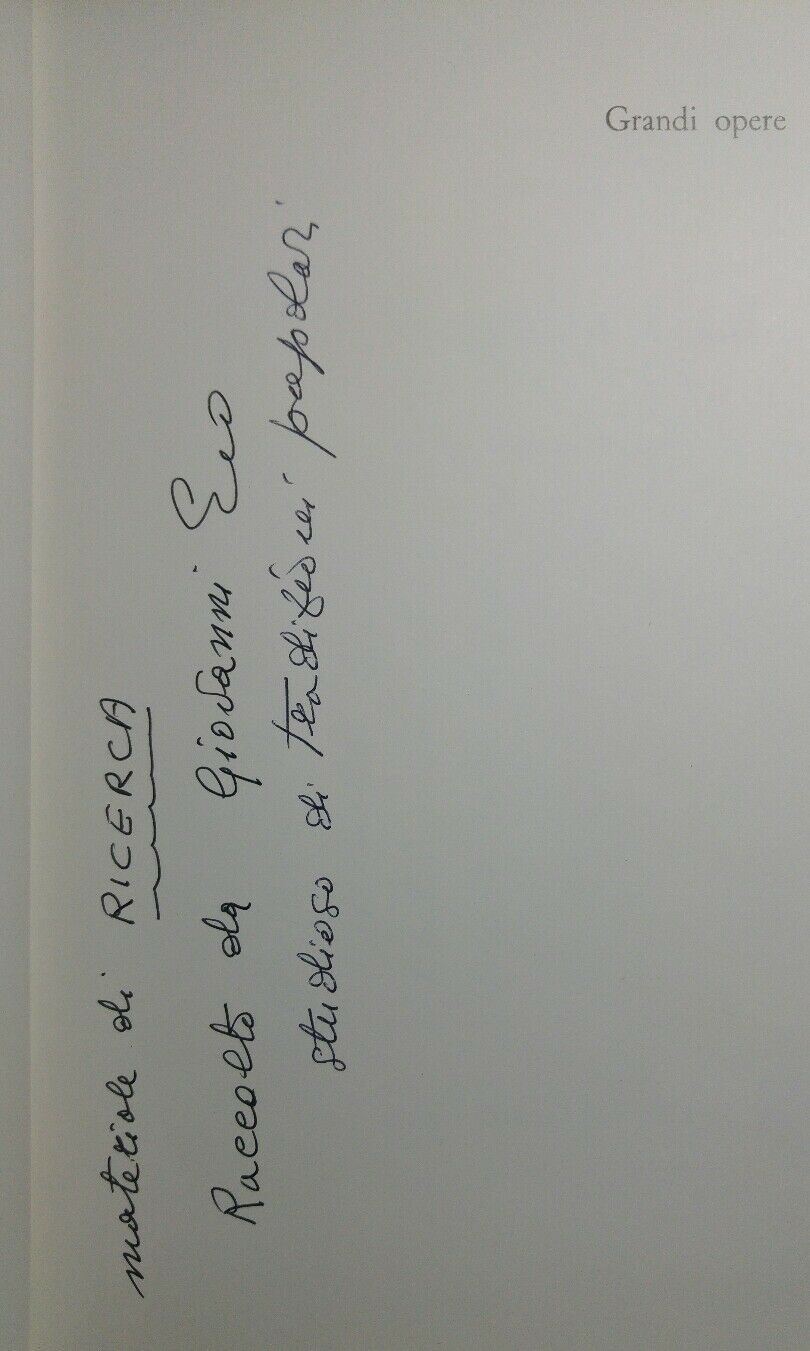 Grandi opere
materiale di RICERCA
Raccolto da Giovanni
studioso di tradizioni popolari